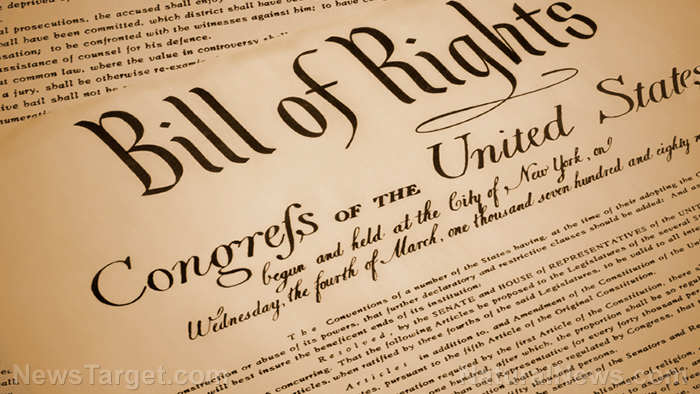 deprived of
prosecutions, the accused shall enjoy
shall have been committed, which district shall have be
sation; to be confronted with the witnesses against him; to have co
assistance of counsel for his defence.
at common law, where the value in controversy shall
a jury, shall be otherwise re-exam
ive bail shall not be
enumeration
Bill of Rights
Congreſs OF THE United States
begun and held at the City of New York, on
Wednesday, the fourth of March, one thousand seven hundred and eighty n
The Conventions of a number of the States having, at the time of their adopting the C
onstruction or abuse of its powers, that further declaratory and restrictive clauses should be added: And as
will best insure the beneficent ends of its institution;
Resolved, by the SENATE and HOUSE of REPRESENTATIVES of the UNIT
s concurring, That the following Articles be proposed to the Legislatures of the several S
Articles, when ratified by three fourths of the said Legislatures, to be valid to all inten
Articles in addition to, and Amendment of the Constitution of the
States, pursuant to the fifth Article of the Original Constitution.
required by the first Article of the Constitution, there
after which, the proportion shall be so reg
representative for every forty thousand
regulated by Congress, that
Senators and
religion,
NewsTarget.com
naturalnews.com